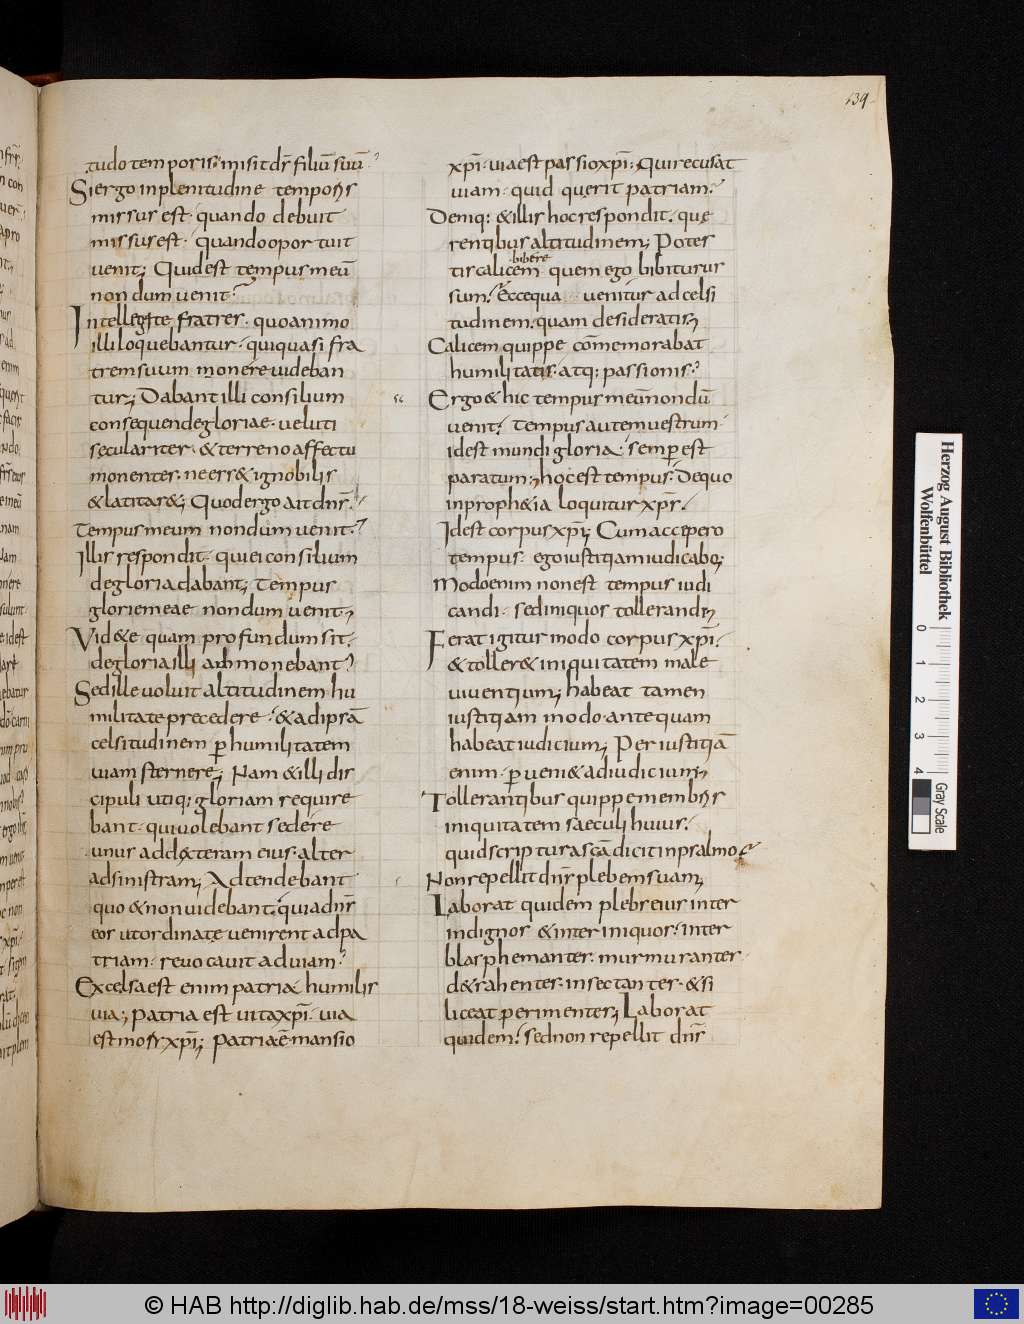 139
tudo temporis; misit dr̄ filiū suū
Si ergo in plenitudine temporis
missus est· quando debuit
missus est· quando oportuit
uenit; Quid est tempus meū
nondum uenit?
Intellegite fratres· quo animo
illi loquebantur· qui quasi fra
trem suum monere uideban
tur; Dabant illi consilium
consequendę gloriae· ueluti
sęculariter· & terreno affectu
monentes· ne ess& ignobilis
& latitar&; Quod ergo ait dn̄s·
Tempus meum nondum uenit·
Illis respondit· qui ei consilium
de gloria dabant; Tempus
glorię meae nondum uenit;
Vid&e quam profundum sit·
de gloria illi ammonebant?
Sed ille uoluit altitudinem hu
militate precedere· & ad ipsā
celsitudinem ꝑ humilitatem
uiam sternere; Nam & illi dis
cipuli utiq; gloriam require
bant· qui uolebant sedere
unus ad dexteram eius· alter
ad sinistram; Adtendebant
quo & non uidebant· qua dn̄s
eos ut ordinate uenirent ad pa
triam· reuocauit ad uiam?
Excelsa est enim patria humilis
uia; patria est uita xp̄i· uia
est mors xp̄i; patria ē mansio
xp̄i· uia est passio xp̄i; Qui recusat
uiam· quid quęrit patriam?
Deniq; & illis hoc respondit· quę
rentibus altitudinem; Potes
bibere
tis calicem quem ego bibiturus
sum? Ecce qua uenitur ad celsi
tudinem· quam desideratis;
Calicem quippe cōmemorabat
humilitatis· atq; passionis?
Ergo & hic tempus meū nondū
uenit? tempus autem uestrum·
id est mundi gloria· semꝑ est
paratum; hoc est tempus· De quo
in proph&ia loquitur xp̄s·
Id est corpus xp̄i; Cum accepero
tempus· ego iustitiam iudicabo;
Modo enim non est tempus iudi
candi· sed iniquos tollerandi;
Ferat igitur modo corpus xp̄i
& toller& iniquitatem male
uiuentium; habeat tamen
iustitiam modo· ante quam
habeat iudicium; Per iustitiā
enim· ꝑueni& ad iudicium;
Tollerantibus quippe membris
iniquitatem saeculi huius·
quid scriptura scā dicit in psalmo
Non repellit dn̄s plebem suam;
Laborat quidem plebs eius inter
indignos & inter iniquos· inter
blasphemantes· murmurantes·
d&rahentes· insectantes· & si
liceat perimentes; Laborat
quidem? sed non repellit dn̄s
Herzog August Bibliothek
Wolfenbüttel
0 1 2 3 4
Gray Scale
© HAB http://diglib.hab.de/mss/18-weiss/start.htm?image=00285